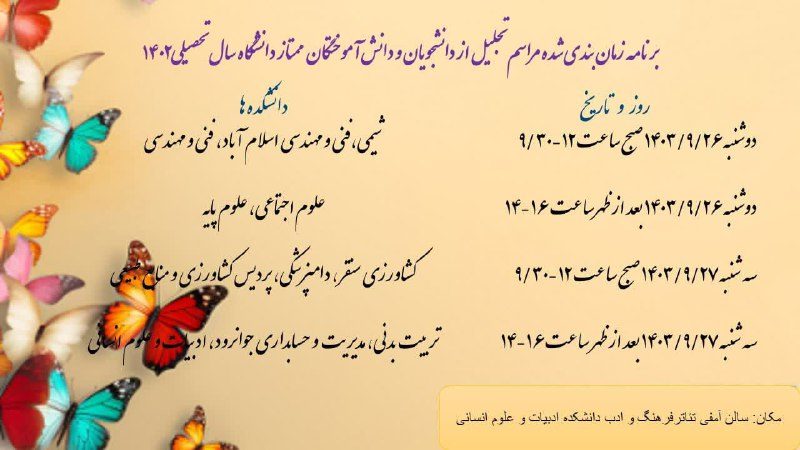 برنامه زمان‌بندی‌شده مراسم تجلیل از دانشجویان و دانش‌آموختگان ممتاز دانشگاه سال تحصیلی ۱۴۰۲
روز و تاریخ دانشکده‌ها
دوشنبه ۱۴۰۳/۹/۲۶ صبح ساعت ۱۲-۹/۳۰ شیمی، فنی و مهندسی اسلام آباد، فنی و مهندسی
دوشنبه ۱۴۰۳/۹/۲۶ بعد از ظهر ساعت ۱۶-۱۴ علوم اجتماعی، علوم پایه
سه شنبه ۱۴۰۳/۹/۲۷ صبح ساعت ۱۲-۹/۳۰ کشاورزی سنقر، دامپزشکی، پردیس کشاورزی و منابع طبیعی
سه شنبه ۱۴۰۳/۹/۲۷ بعد از ظهر ساعت ۱۶-۱۴ تربیت بدنی، مدیریت و حسابداری جوانرود، ادبیات و علوم انسانی
مکان: سالن آمفی تئاترفرهنگ و ادب دانشکده ادبیات و علوم انسانی